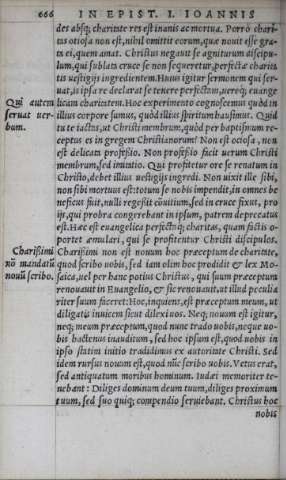 666 IN EPIST. I. IOANNIS
des absq; charitate res est inanis ac mortua. Porrò chari-
tas otiosa non est, nihil omittit eorum, quæ nouit esse gra-
ta ei, quem amat. Christus negauit se agniturum discipu-
lum, qui sublata cruce se non sequeretur, perfectæ charita-
tis uestigijs ingredientem. Huius igitur sermonem qui ser-
uat, is ipsa re declarat se tenere perfectam, uereq; euange
Qui autem
seruat uer-
bum.
licam charitatem. Hoc experimento cognoscimus quòd in
illius corpore sumus, quòd illius spiritum hausimus. Quid
tu te iactas, ut Christi membrum, quòd per baptismum re-
ceptus es in gregem Christianorum? Non est ociosa, non
est delicata professio. Non professio facit uerum Christi
membrum, sed imitatio. Qui profitetur ore se renatum in
Christo, debet illius uestigijs ingredi. Non uixit ille sibi,
non sibi mortuus est: totum se nobis impendit, in omnes be
neficus fuit, nulli regessit cōuitium, sed in cruce fixus, pro
ijs, qui probra congerebant in ipsum, patrem deprecatus
est. Hæc est euangelica perfectaq; charitas, quam factis o-
portet æmulari, qui se profitentur Christi discipulos.
Charissimi
nō mandatū
nouū scribo.
Charissimi non est nouum hoc præceptum de charitate,
quod scribo uobis, sed iam olim hoc prodidit & lex Mo-
saica, uel per hanc potius Christus, qui suum præceptum
renouauit in Euangelio, & sic renouauit, ut illud peculia
riter suum faceret: Hoc, inquiens, est præceptum meum, ut
diligatis inuicem sicut dilexi uos. Neq; nouum est igitur,
neq; meum præceptum, quod nunc trado uobis, neque uo-
bis hactenus inauditum, sed hoc ipsum est, quod uobis in
ipso statim initio tradidimus ex autoritate Christi. Sed
idem rursus nouum est, quod nūc scribo uobis. Vetus erat,
sed antiquatum moribus hominum. Iudæi memoriter te-
nebant: Diliges dominum deum tuum, diliges proximum
tuum, sed suo quisq; compendio seruiebant. Christus hoc
nobis